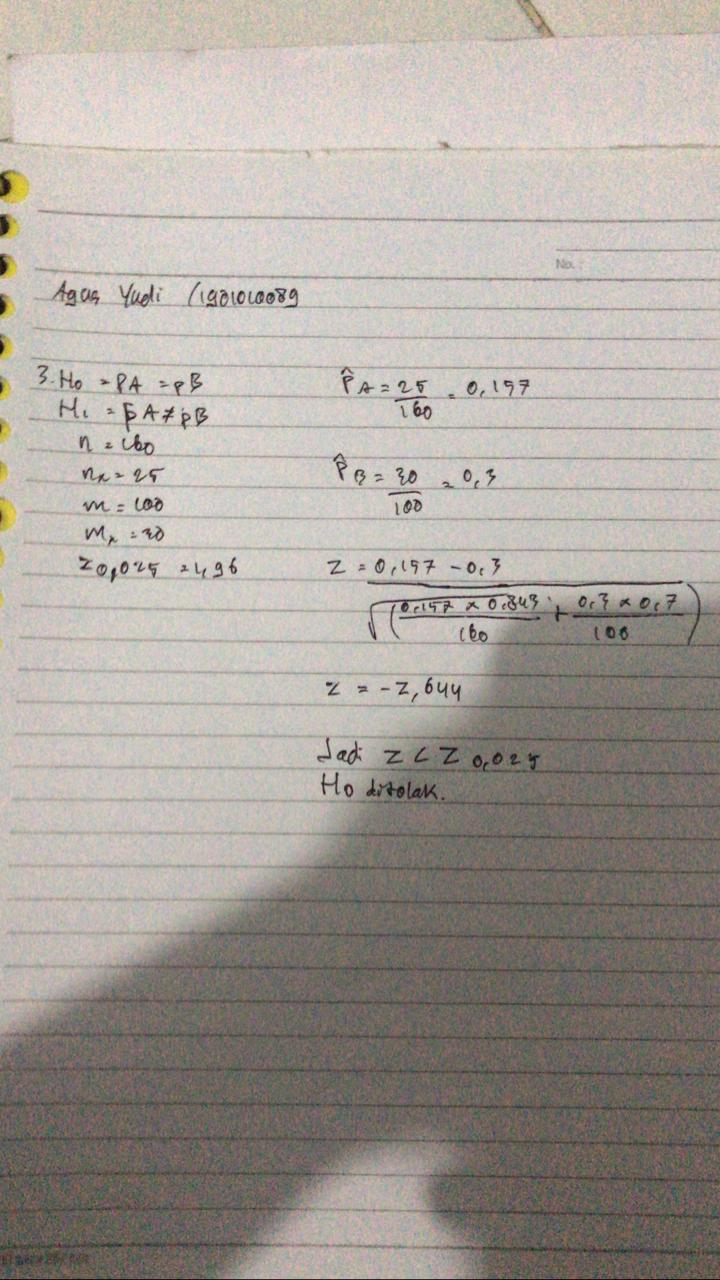 No. :
Agus Yudi /1901010089
3. H0 = PA = pB
H1 = pA ≠ pB
n = 160
nx = 25
m = 100
mx = 30
z0,025 = 1,96
P̂A = 25/160 = 0,157
P̂B = 30/100 = 0,3
Z = 0,157 - 0,3 / √((0,157 x 0,843)/160 + (0,3 x 0,7)/100)
z = -2,644
Jadi Z < Z 0,025
H0 ditolak.